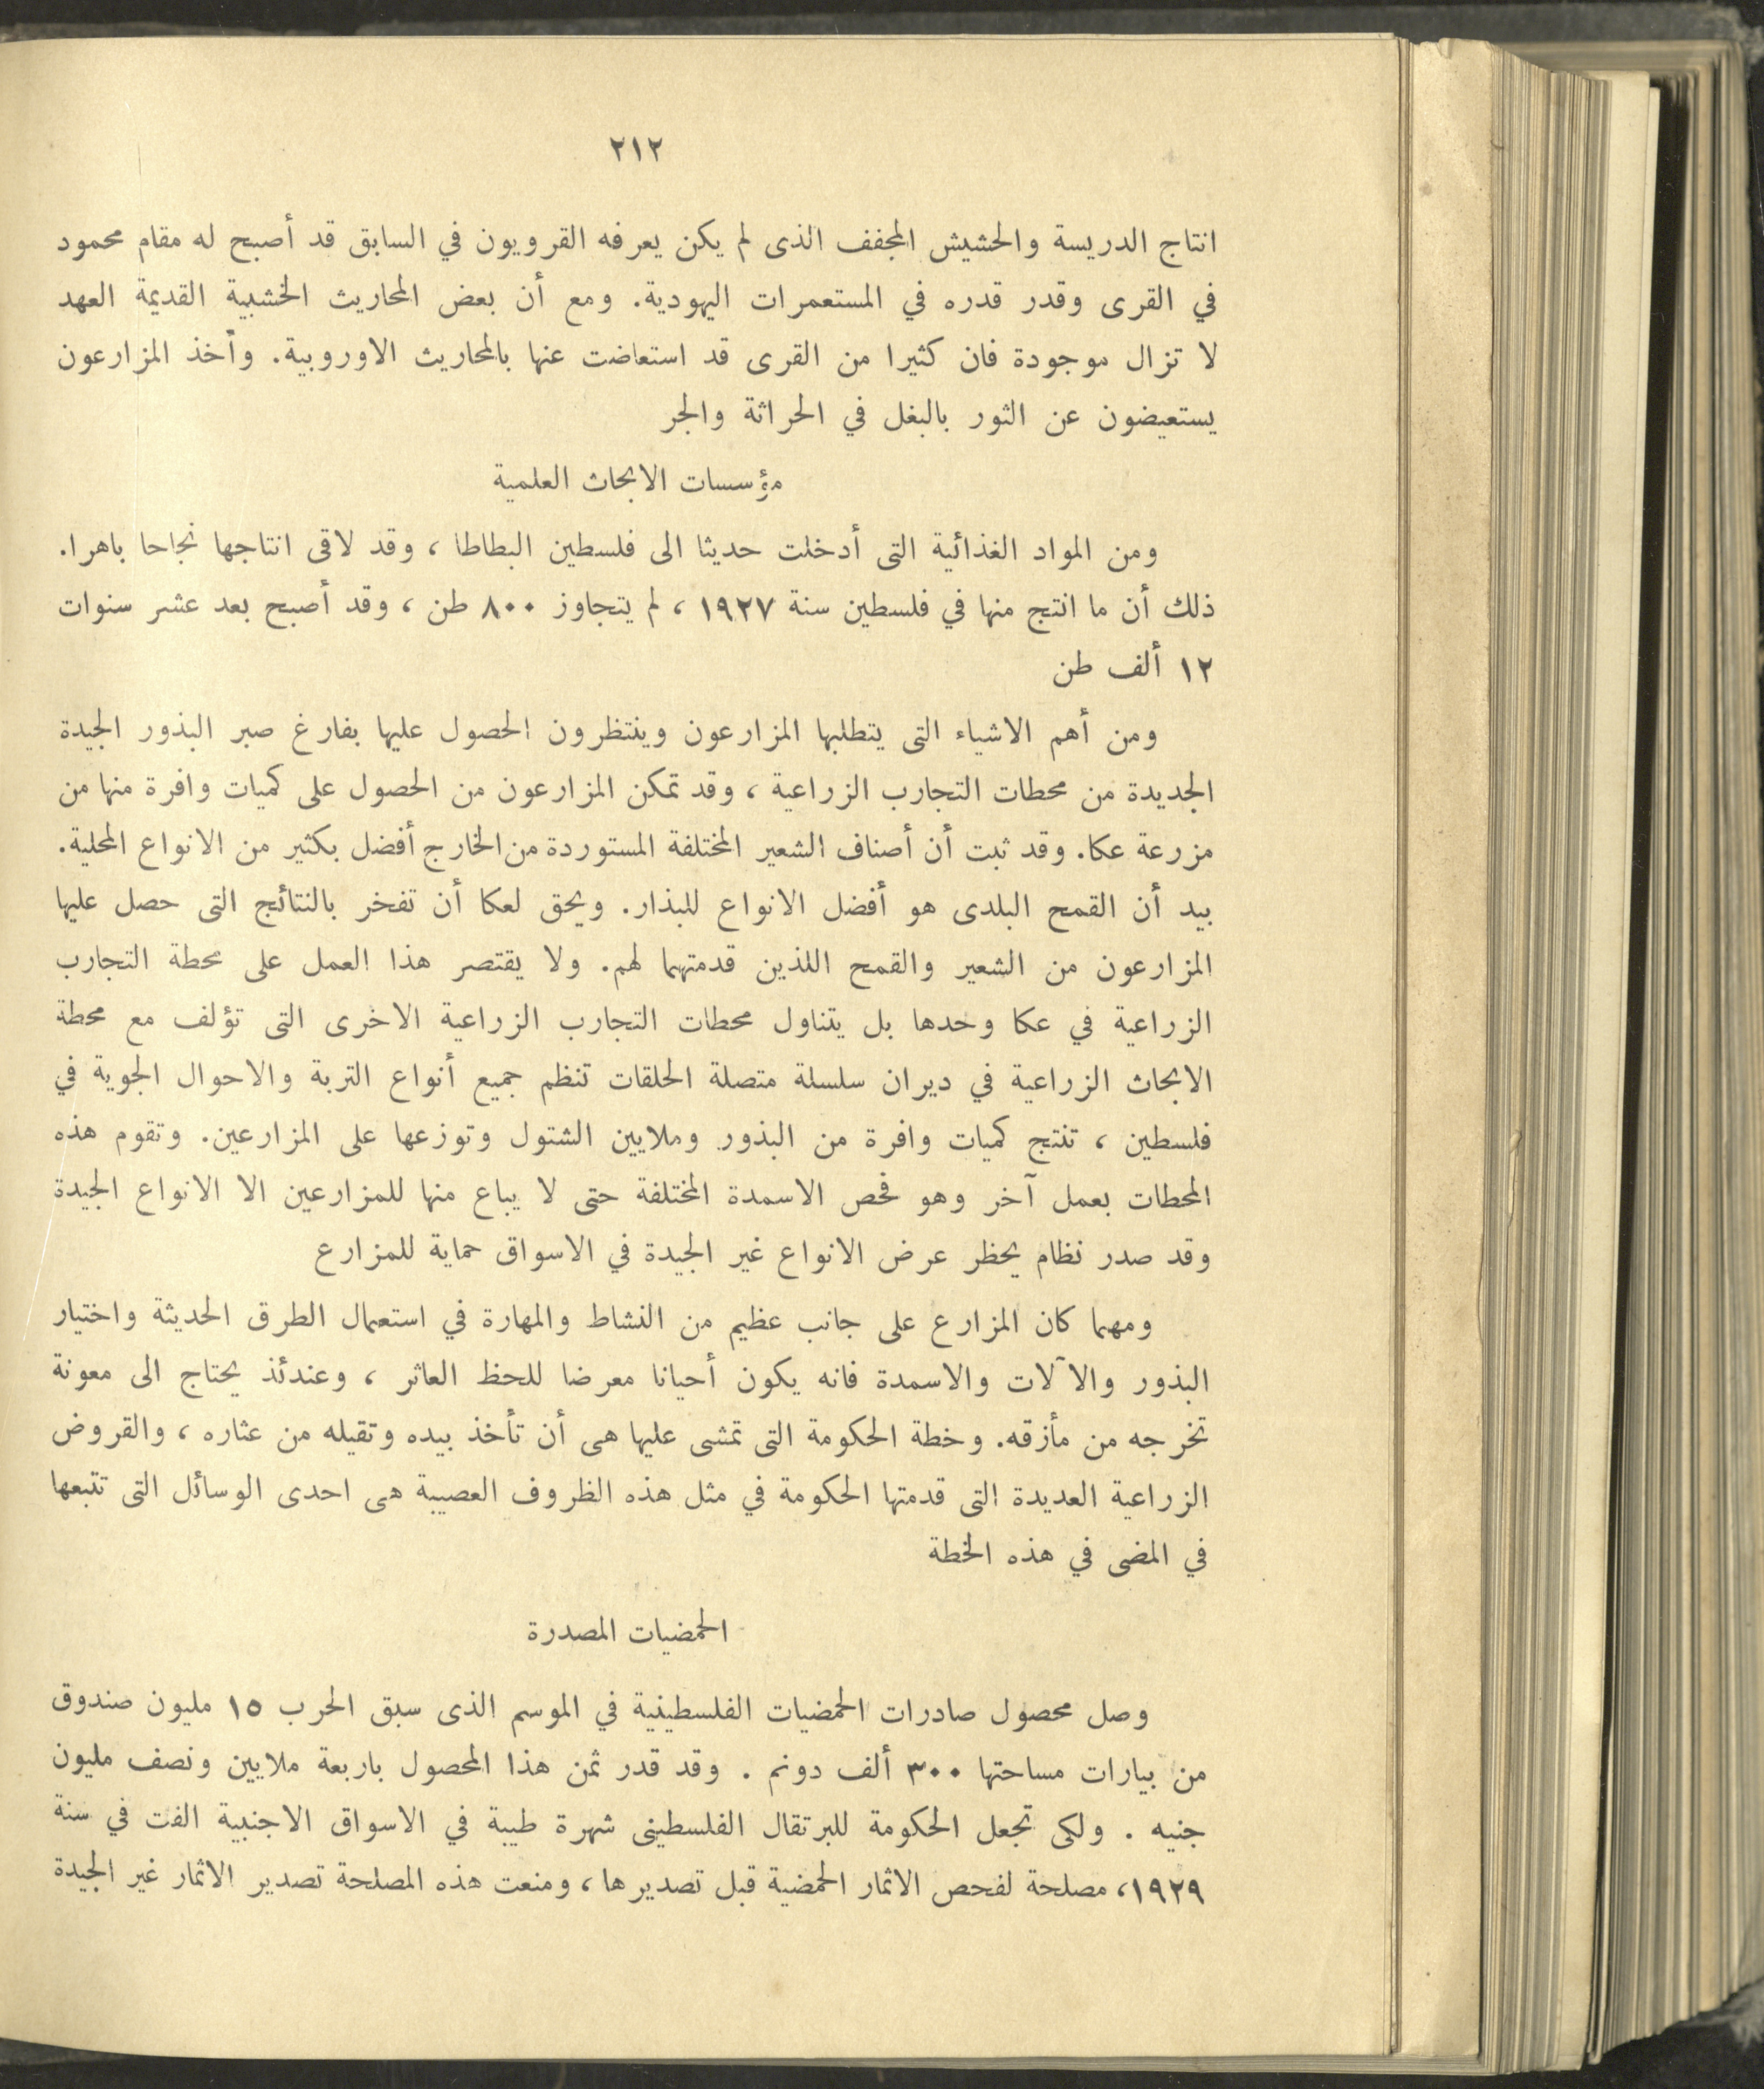 ٢١٢
انتاج الدريسة والحشيش المجفف الذى لم يكن يعرفه القرويون في السابق قد أصبح له مقام محمود
في القرى وقدر قدره في المستعمرات اليهودية. ومع أن بعض المحاريث الخشبية القديمة العهد
لا تزال موجودة فان كثيرا من القرى قد استعاضت عنها بالمحاريث الاوروبية. وأخذ المزارعون
يستعيضون عن الثور بالبغل في الحراثة والجر
مؤسسات الابحاث العلمية
ومن المواد الغذائية التى أدخلت حديثا الى فلسطين البطاطا ، وقد لاقى انتاجها نجاحا باهرا.
ذلك أن ما انتج منها في فلسطين سنة ١٩٢٧ ، لم يتجاوز ٨٠٠ طن ، وقد أصبح بعد عشر سنوات
١٢ ألف طن
ومن أهم الاشياء التى يتطلبها المزارعون وينتظرون الحصول عليها بفارغ صبر البذور الجيدة
الجديدة من محطات التجارب الزراعية ، وقد تمكن المزارعون من الحصول على كميات وافرة منها من
مزرعة عكا. وقد ثبت أن أصناف الشعير المختلفة المستوردة من الخارج أفضل بكثير من الانواع المحلية.
بيد أن القمح البلدى هو أفضل الانواع للبذار. ويحق لعكا أن تفخر بالنتائج التى حصل عليها
المزارعون من الشعير والقمح اللذين قدمتهما لهم. ولا يقتصر هذا العمل على محطة التجارب
الزراعية في عكا وحدها بل يتناول محطات التجارب الزراعية الاخرى التى تؤلف مع محطة
الابحاث الزراعية في ديران سلسلة متصلة الحلقات تنظم جميع أنواع التربة والاحوال الجوية في
فلسطين ، تنتج كميات وافرة من البذور وملايين الشتول وتوزعها على المزارعين. وتقوم هذه
المحطات بعمل آخر وهو فحص الاسمدة المختلفة حتى لا يباع منها للمزارعين الا الانواع الجيدة
وقد صدر نظام يحظر عرض الانواع غير الجيدة في الاسواق حماية للمزارع
ومهما كان المزارع على جانب عظيم من النشاط والمهارة في استعمال الطرق الحديثة واختيار
البذور والآلات والاسمدة فانه يكون أحيانا معرضا للحظ العاثر ، وعندئذ يحتاج الى معونة
تخرجه من مأزقه. وخطة الحكومة التى تمشى عليها هى أن تأخذ بيده وتقيله من عثاره ، والقروض
الزراعية العديدة التى قدمتها الحكومة في مثل هذه الظروف العصيبة هى احدى الوسائل التى تتبعها
في المضى في هذه الخطة
الحمضيات المصدرة
وصل محصول صادرات الحمضيات الفلسطينية في الموسم الذى سبق الحرب ١٥ مليون صندوق
من بيارات مساحتها ٣٠٠ ألف دونم . وقد قدر ثمن هذا المحصول باربعة ملايين ونصف مليون
جنيه . ولكى تجعل الحكومة للبرتقال الفلسطينى شهرة طيبة في الاسواق الاجنبية الفت في سنة
١٩٢٩، مصلحة لفحص الاثمار الحمضية قبل تصديرها ، ومنعت هذه المصلحة تصدير الاثمار غير الجيدة